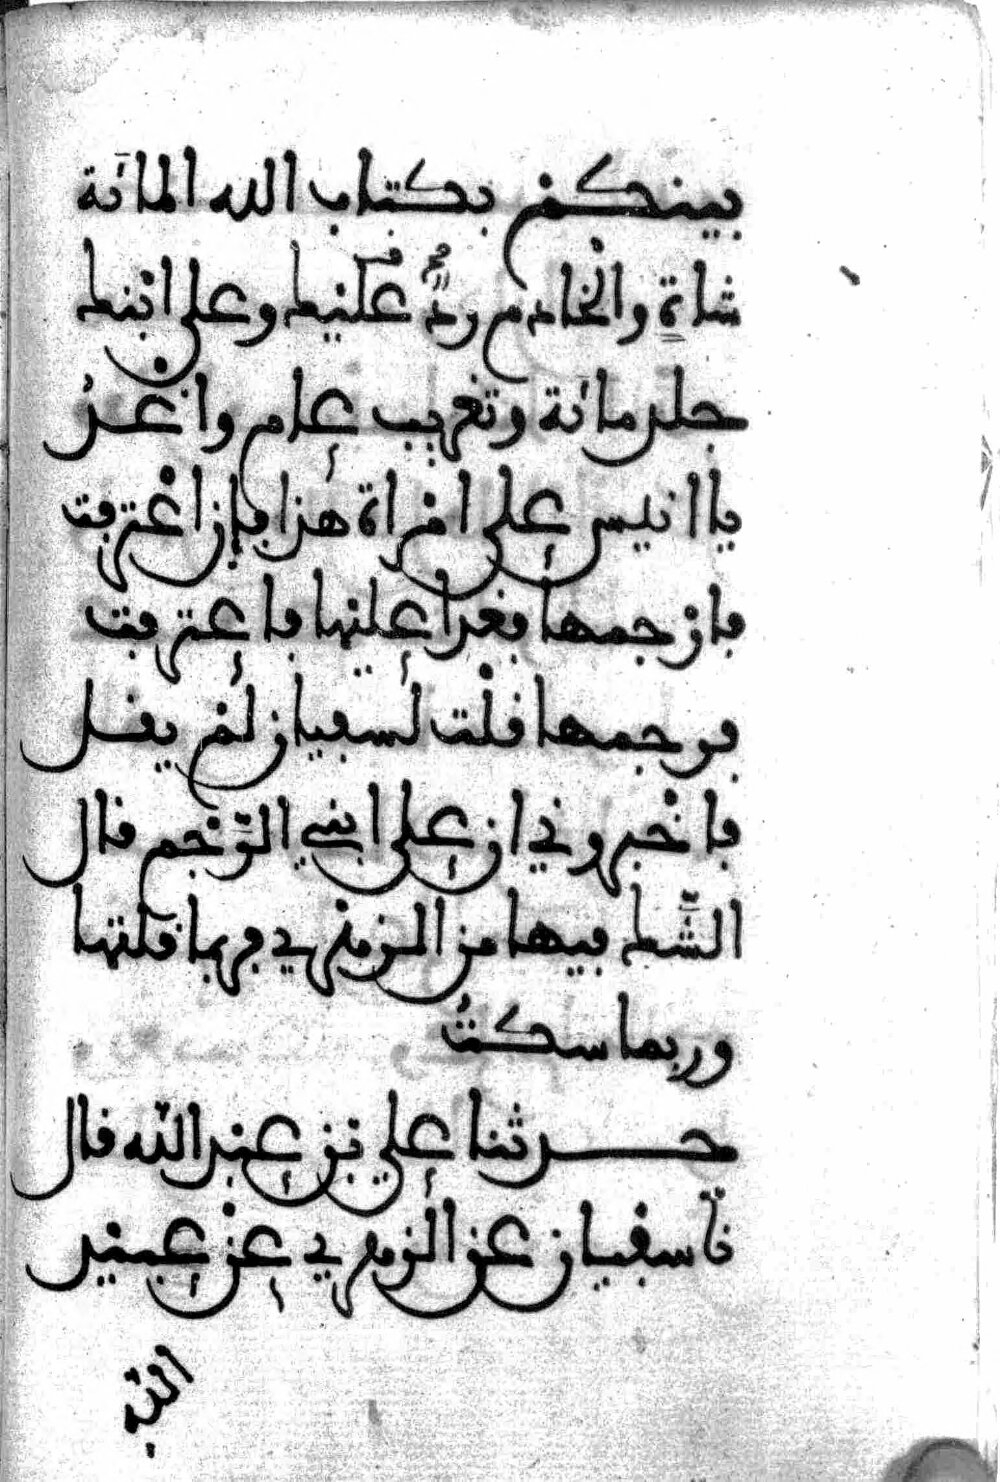 بينكم بكتاب الله المائة
شاة والخادم رد عليك وعلى ابنك
جلد مائة وتغريب عام واغد
يا انيس على امراة هذا فإن اعترفت
فارجمها فغدا عليها فاعترفت
فرجمها قلت لسفيان لم يقل
فاخبروني ان على ابني الرجم قال
الشك فيها من الزهري فربما قلتها
وربما سكت
حدثنا علي بن عبد الله قال
نا سفيان عن الزهري عن عبيد
الله